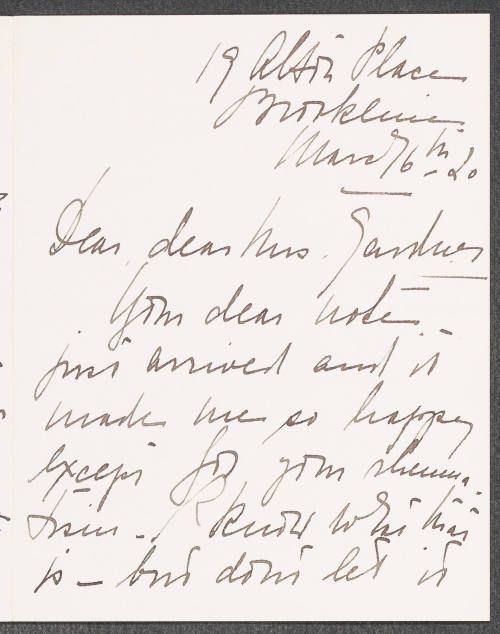 19 Alton Place
Brookline
March 6th 20
Dear, dear Mrs. Gardner
Your dear note
just arrived and it
made me so happy
except for your rheuma-
tism - I know what that
is - but don't let it